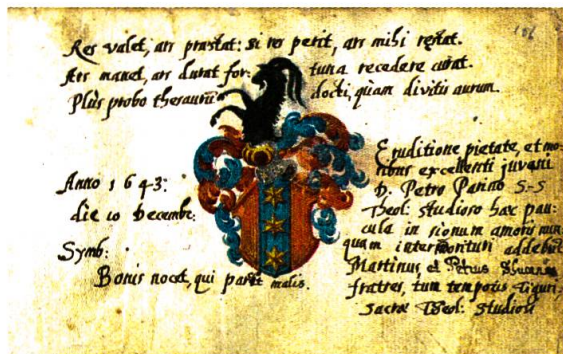 106
Res valet, ars præstat: si res perit, ars mihi restat.
Ars manet, ars durat fortuna recedere curat.
Plus probo thesaurum docti, quam divitis aurum.
Anno 1643:
die 10 Decembr:
Symb:
Bonis nocet, qui parcit malis.
Eruditione pietate, et mo-
ribus excellenti juveni
D. Petro Parino S-S
Theol: studioso hæc pau-
cula in signum amoris nun-
quam intermorituri addebat
Martinus et Petrus
fratres, tum temporis Tiguri,
Sacræ Theol: Studiosi